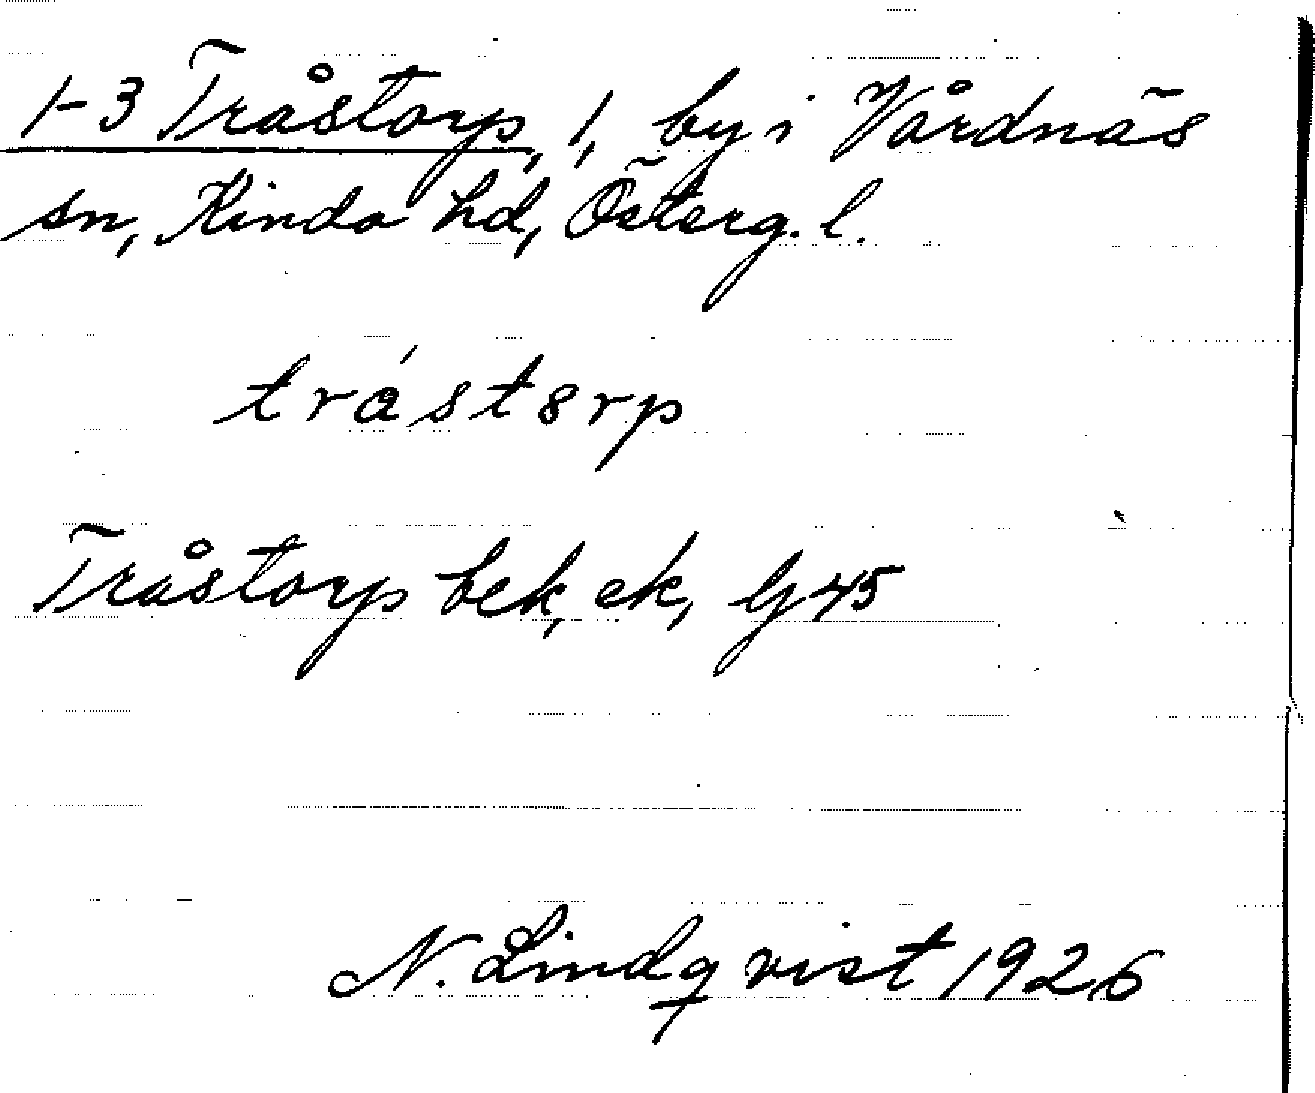 1-3 Tråstorp, 1, by i Vårdnäs
sn, Kinda hd, Österg. l.
tråstorp
Tråstorp bek, ek, Gj 45
N. Lindqvist 1926